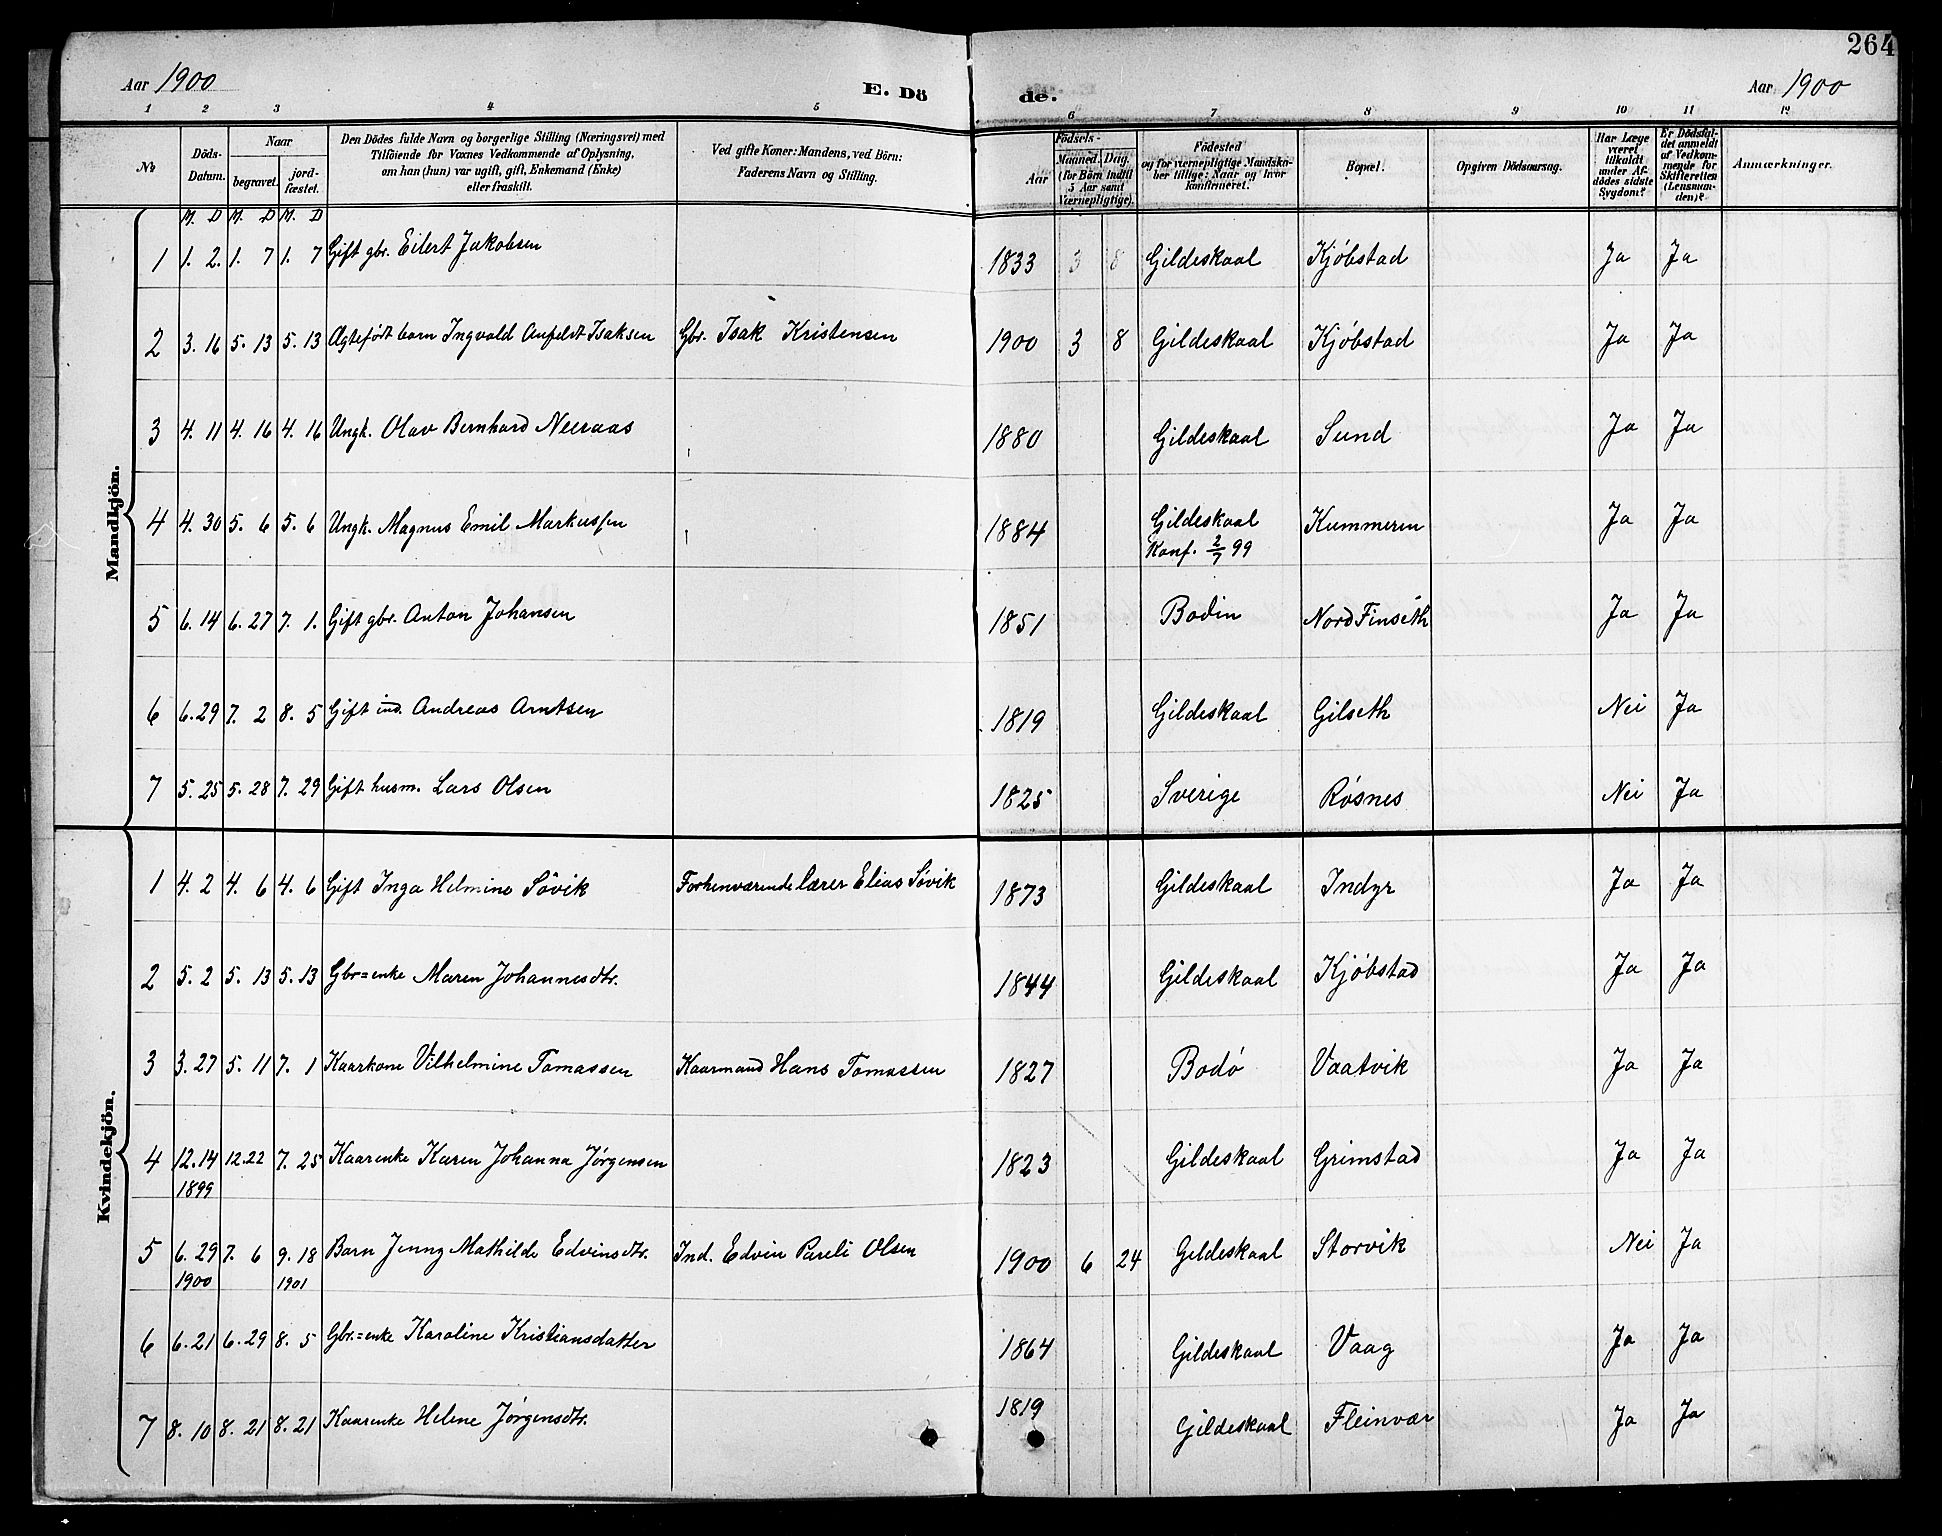 264
Aar 1900 E. Dö de. Aar 1900
1 2 3 4 5 6 7 8 9 10 11 12
No
Döds-Datum.
Naar
begravet.
jordfæstet.
Den Dödes fulde Navn og borgerlige Stilling (Næringsvei) med
Tilföiende for Voxnes Vedkommende af Oplysning,
om han (hun) var ugift, gift, Enkemand (Enke)
eller fraskilt.
Ved gifte Koner: Mandens, ved Börn:
Faderens Navn og Stilling.
Födsels-
Aar
Maaned. Dag.
(for Börn indtil
5 Aar samt
Værnepligtige).
Födested
og for værnepligtige Mandska-
ber tillige: Naar og hvor
konfirmeret.
Bopæl.
Opgiven Dödsaarsag.
Har Læge
været
tilkaldt
under Af-
dödes sidste
Sygdom?
Er Dödsfal-
det anmeldt
af Vedkom-
mende for
Skifteretten
(Lensman-
den)?
Anmærkninger.
M. D M. D M. D
Mandkjön.
1 1. 2. 1. 7 1. 7 Gift gbr. Eilert Jakobsen 1833 3 8 Gildeskaal Kjøbstad Ja Ja
2 3. 16 5. 13 5. 13 Ægtefødt barn Ingvald Anfeldt Isaksen Gbr. Isak Kristensen 1900 3 8 Gildeskaal Kjøbstad Ja Ja
3 4. 11 4. 16 4. 16 Ungk. Olav Bernhard Neeraas 1880 Gildeskaal Sund Ja Ja
4 4. 30 5. 6 5. 6 Ungk. Magnus Emil Markussen 1884 Gildeskaal Kummeren Ja Ja
Konf. 2/7 99
5 6. 14 6. 27 7. 1. Gift gbr. Anton Johansen 1851 Bodin Nord Finseth Ja Ja
6 6. 29 7. 2 8. 5 Gift ind. Andreas Arntsen 1819 Gildeskaal Gilseth Nei Ja
7 5. 25 5. 28 7. 29 Gift husm. Lars Olsen 1825 Sverige Røsnes Nei Ja
Kvindekjön.
1 4. 2 4. 6 4. 6 Gift Inga Helmine Søvik Forhenværende lærer Elias Søvik 1873 Gildeskaal Indyr Ja Ja
2 5. 2 5. 13 5. 13 Gbr=enke Maren Johannesdtr. 1844 Gildeskaal Kjøbstad Ja Ja
3 3. 27 5. 11 7. 1 Kaarkone Vilhelmine Tomassen Kaarmand Hans Tomassen 1827 Bodø Vaatvik Ja Ja
4 12. 14 12. 22 7. 25 Kaarenke Karen Johanna Jørgensen 1823 Gildeskaal Grimstad Ja Ja
1899
5 6. 29 7. 6 9. 18 Barn Jenny Mathilde Edvinsdtr. Ind. Edvin Pareli Olsen 1900 6 24 Gildeskaal Storvik Nei Ja
1900 1901
6 6. 21 6. 29 8. 5 Gbr.=enke Karoline Kristiansdatter 1864 Gildeskaal Vaag Ja Ja
7 8. 10 8. 21 8. 21 Kaarenke Helene Jørgensdtr. 1819 Gildeskaal Fleinvær Ja Ja